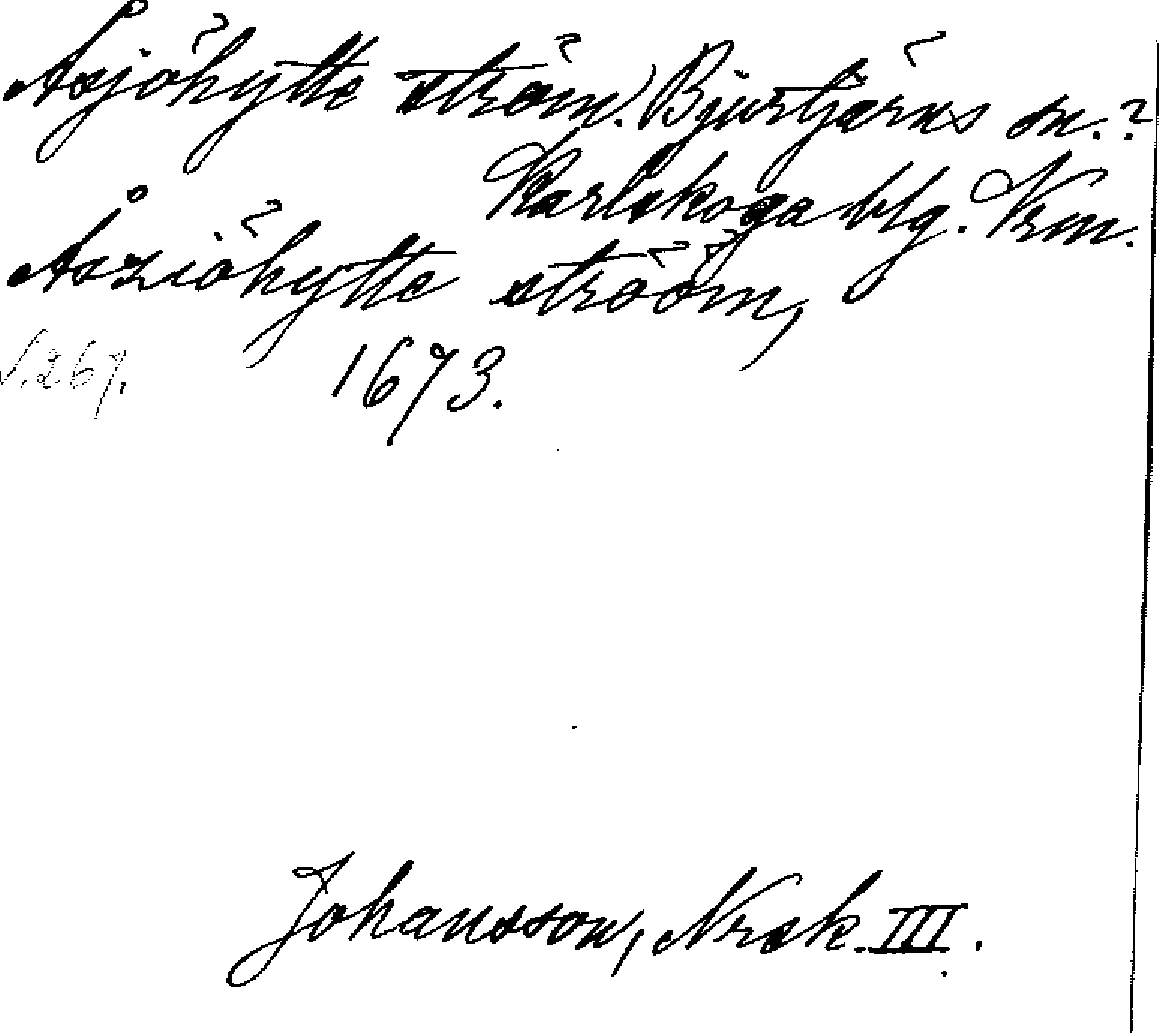 Åsjöhytte ström. Bjurtjärns sn.?
Karlskoga blg. Vrm.
Åsziöhytte strööm,
s. 267. 1673.
Johansson, Nrsk. III.